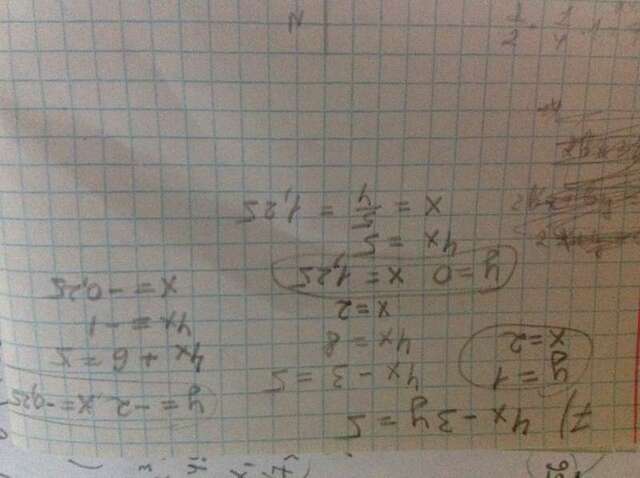 7) 4x - 3y = 5
y = 1
x = 2
4x - 3 = 5
4x = 8
x = 2
y = 0 x = 1,25
4x = 5
x = 5/4 = 1,25
y = -2 x = -0,25
4x + 6 = 5
4x = -1
x = -0,25